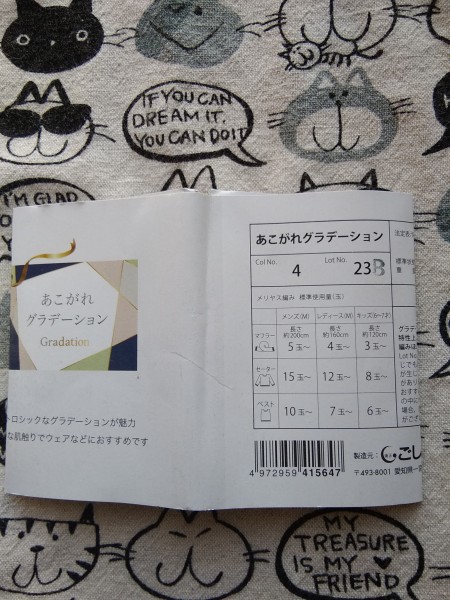 IF YOU CAN
DREAM IT,
YOU CAN DO IT
I'M GLAD
あこがれ
グラデーション
Gradation
トロシックなグラデーションが魅力
な肌触りでウェアなどにおすすめです
あこがれグラデーション
Col No. 4 Lot No. 23B
メリヤス編み 標準使用量(玉)
メンズ(M) レディース(M) キッズ(6〜7才)
マフラー 長さ約200cm 長さ約160cm 長さ約120cm
5玉〜 4玉〜 3玉〜
セーター 15玉〜 12玉〜 8玉〜
ベスト 10玉〜 7玉〜 6玉〜
標準使
グラデ
特性上
編みは
Lot No.
じでも
が生じ
があり
おすす
の中に
場合、
がござ
4 972959 415647
製造元: ごし
〒493-8001 愛知県一
MY
TREASURE
IS MY
FRIEND